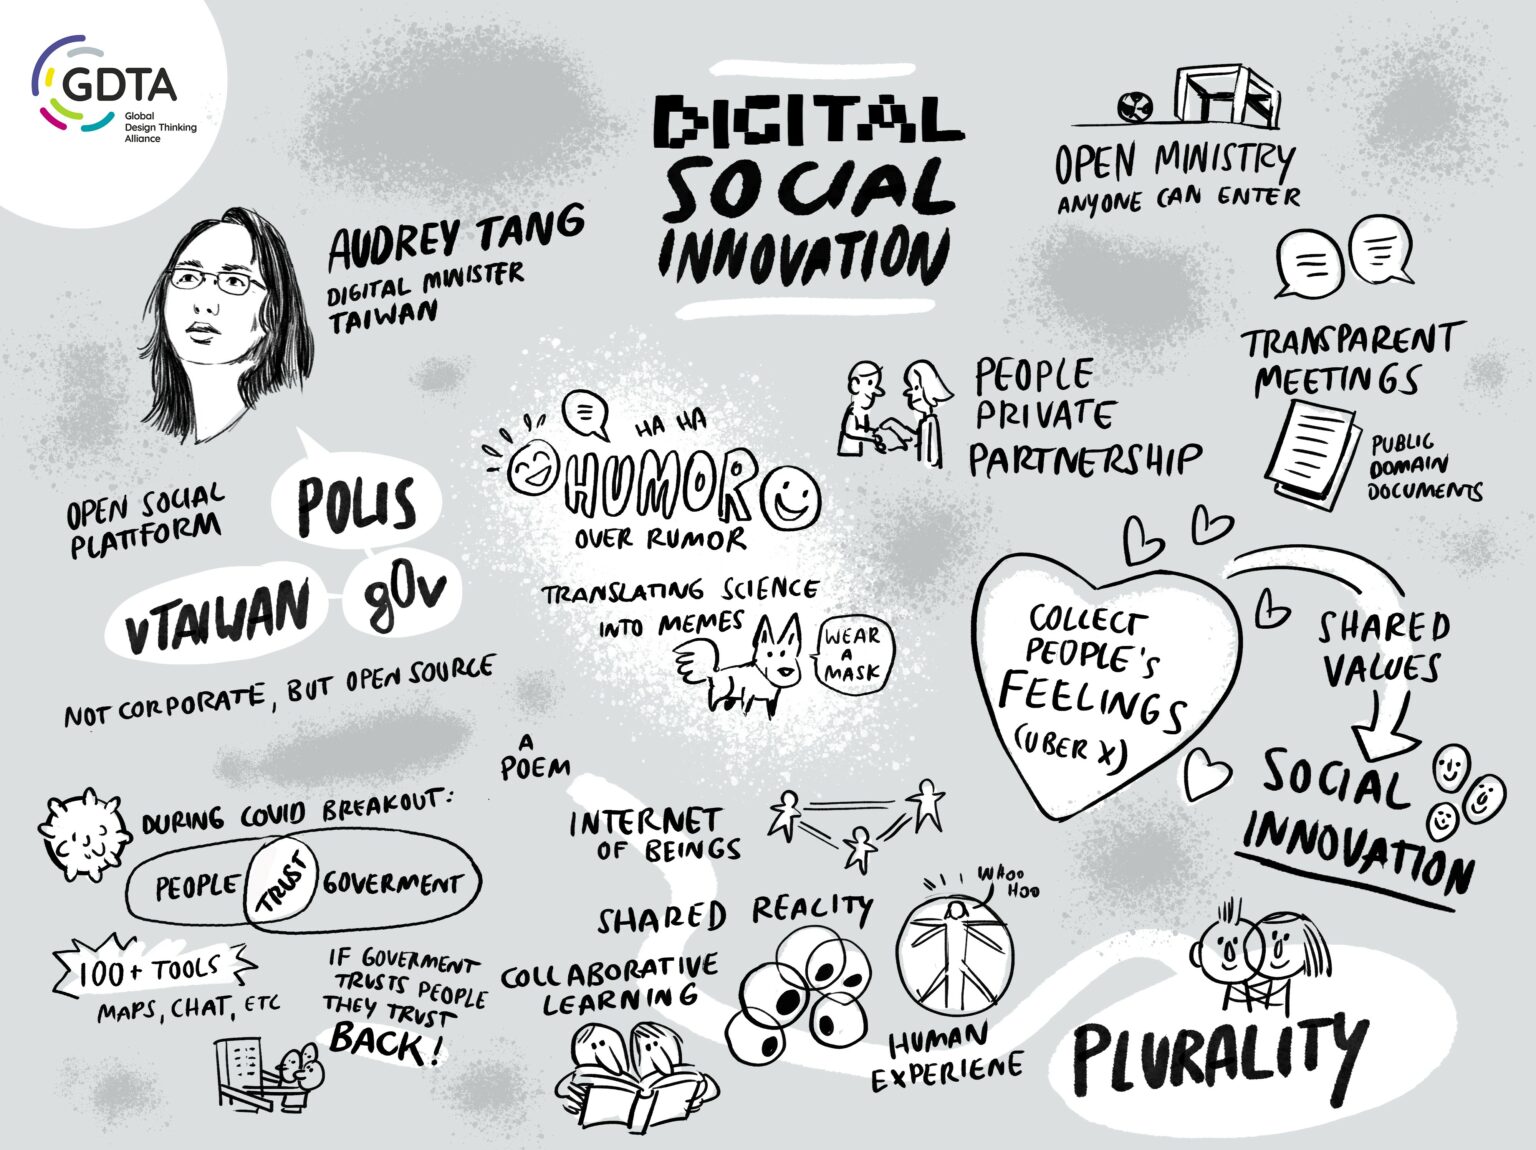 GDTA
Global
Design Thinking
Alliance
DIGITAL
SOCIAL
INNOVATION
AUDREY TANG
DIGITAL MINISTER
TAIWAN
OPEN SOCIAL
PLATTFORM
POLIS
vTAIWAN
g0v
NOT CORPORATE, BUT OPEN SOURCE
HA HA
HUMOR
OVER RUMOR
TRANSLATING SCIENCE
INTO MEMES
WEAR
A
MASK
OPEN MINISTRY
ANYONE CAN ENTER
TRANSPARENT
MEETINGS
PUBLIC
DOMAIN
DOCUMENTS
PEOPLE
PRIVATE
PARTNERSHIP
COLLECT
PEOPLE'S
FEELINGS
(UBER X)
SHARED
VALUES
SOCIAL
INNOVATION
DURING COVID BREAKOUT:
PEOPLE
TRUST
GOVERMENT
100+ TOOLS
MAPS, CHAT, ETC
IF GOVERMENT
TRUSTS PEOPLE
THEY TRUST
BACK!
A
POEM
INTERNET
OF BEINGS
SHARED REALITY
COLLABORATIVE
LEARNING
WHOO
HOO
HUMAN
EXPERIENE
PLURALITY